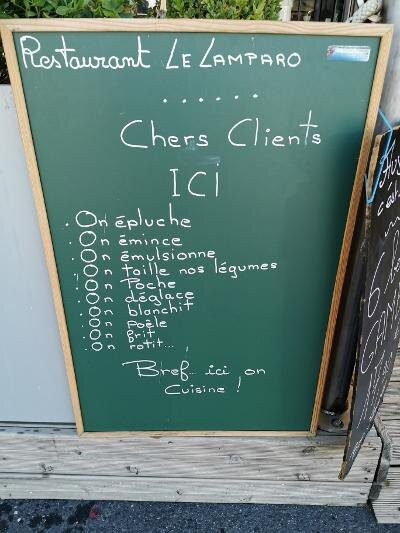 Restaurant Le Lamparo
......
Chers Clients
ICI
. On épluche
. On émince
. On émulsionne
. On taille nos légumes
. On Poche
. On déglace
. On blanchit
. On poêle
. On frit
. On rotit...
Bref... ici on
Cuisine !